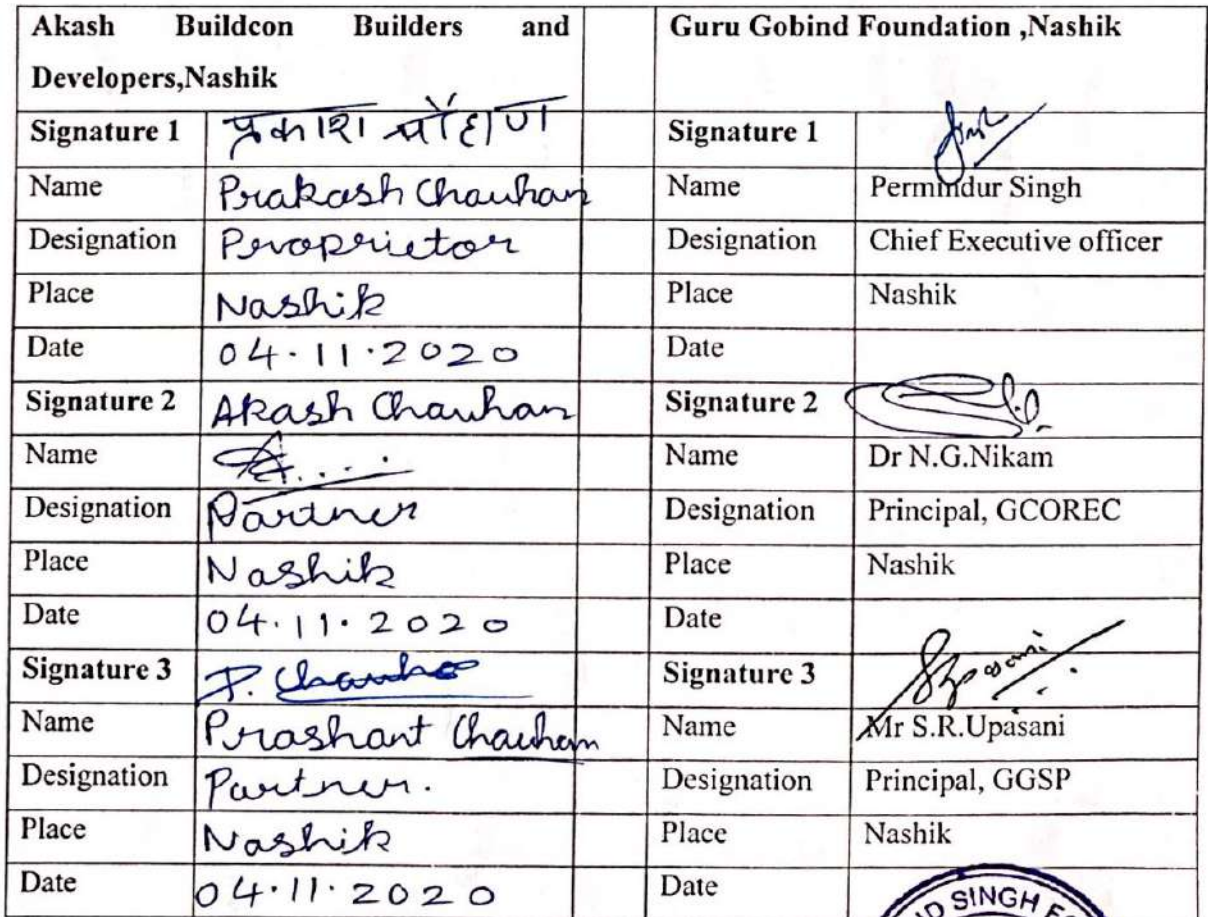 Akash Buildcon Builders and Guru Gobind Foundation ,Nashik
Developers,Nashik
Signature 1 प्रकाश चौहाण Signature 1
Name Prakash Chauhan Name Permindur Singh
Designation Proprietor Designation Chief Executive officer
Place Nashik Place Nashik
Date 04.11.2020 Date
Signature 2 Akash Chauhan Signature 2
Name Name Dr N.G.Nikam
Designation Partner Designation Principal, GCOREC
Place Nashik Place Nashik
Date 04.11.2020 Date
Signature 3 P. Chauhan Signature 3
Name Prashant Chauhan Name Mr S.R.Upasani
Designation Partner. Designation Principal, GGSP
Place Nashik Place Nashik
Date 04.11.2020 Date
SINGH